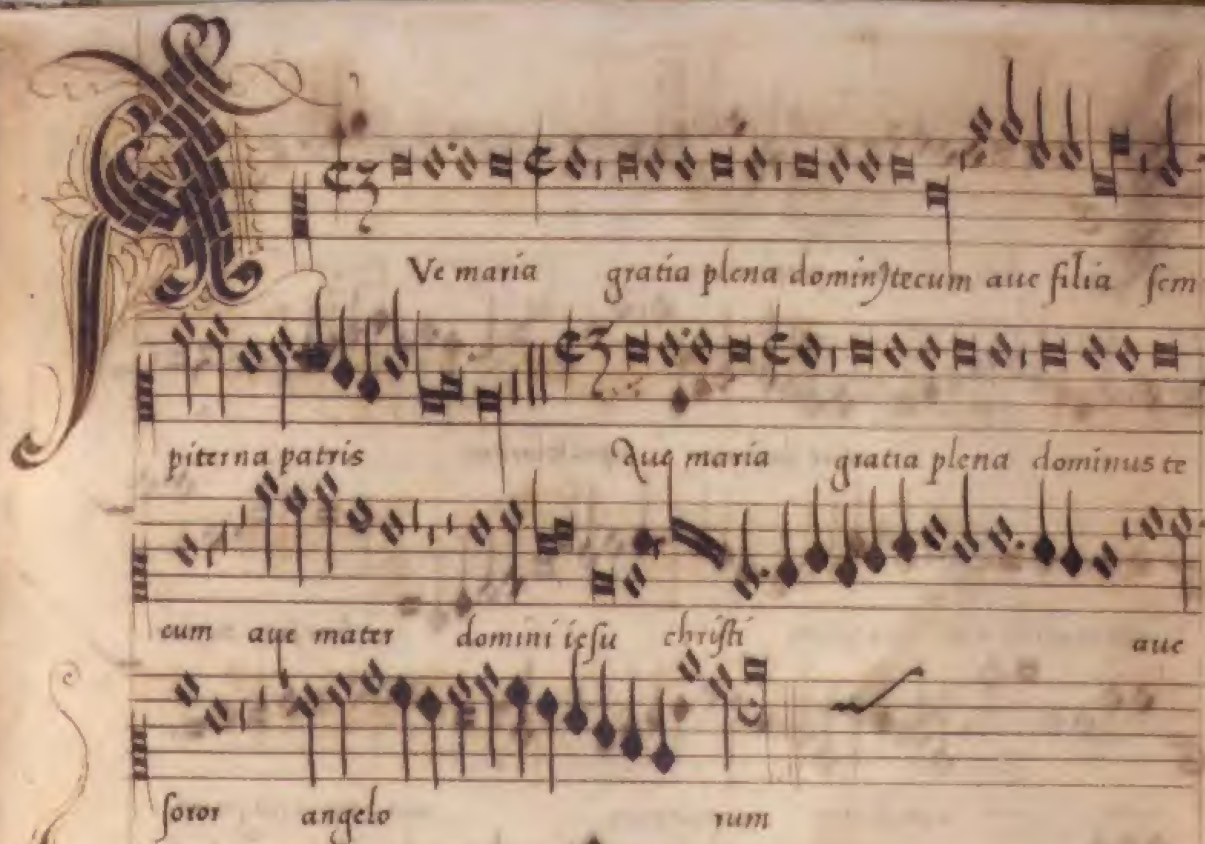 AVe maria gratia plena domin9 tecum aue filia sem
piterna patris Aue maria gratia plena dominus te
cum aue mater domini iesu christi aue
soror angelo rum